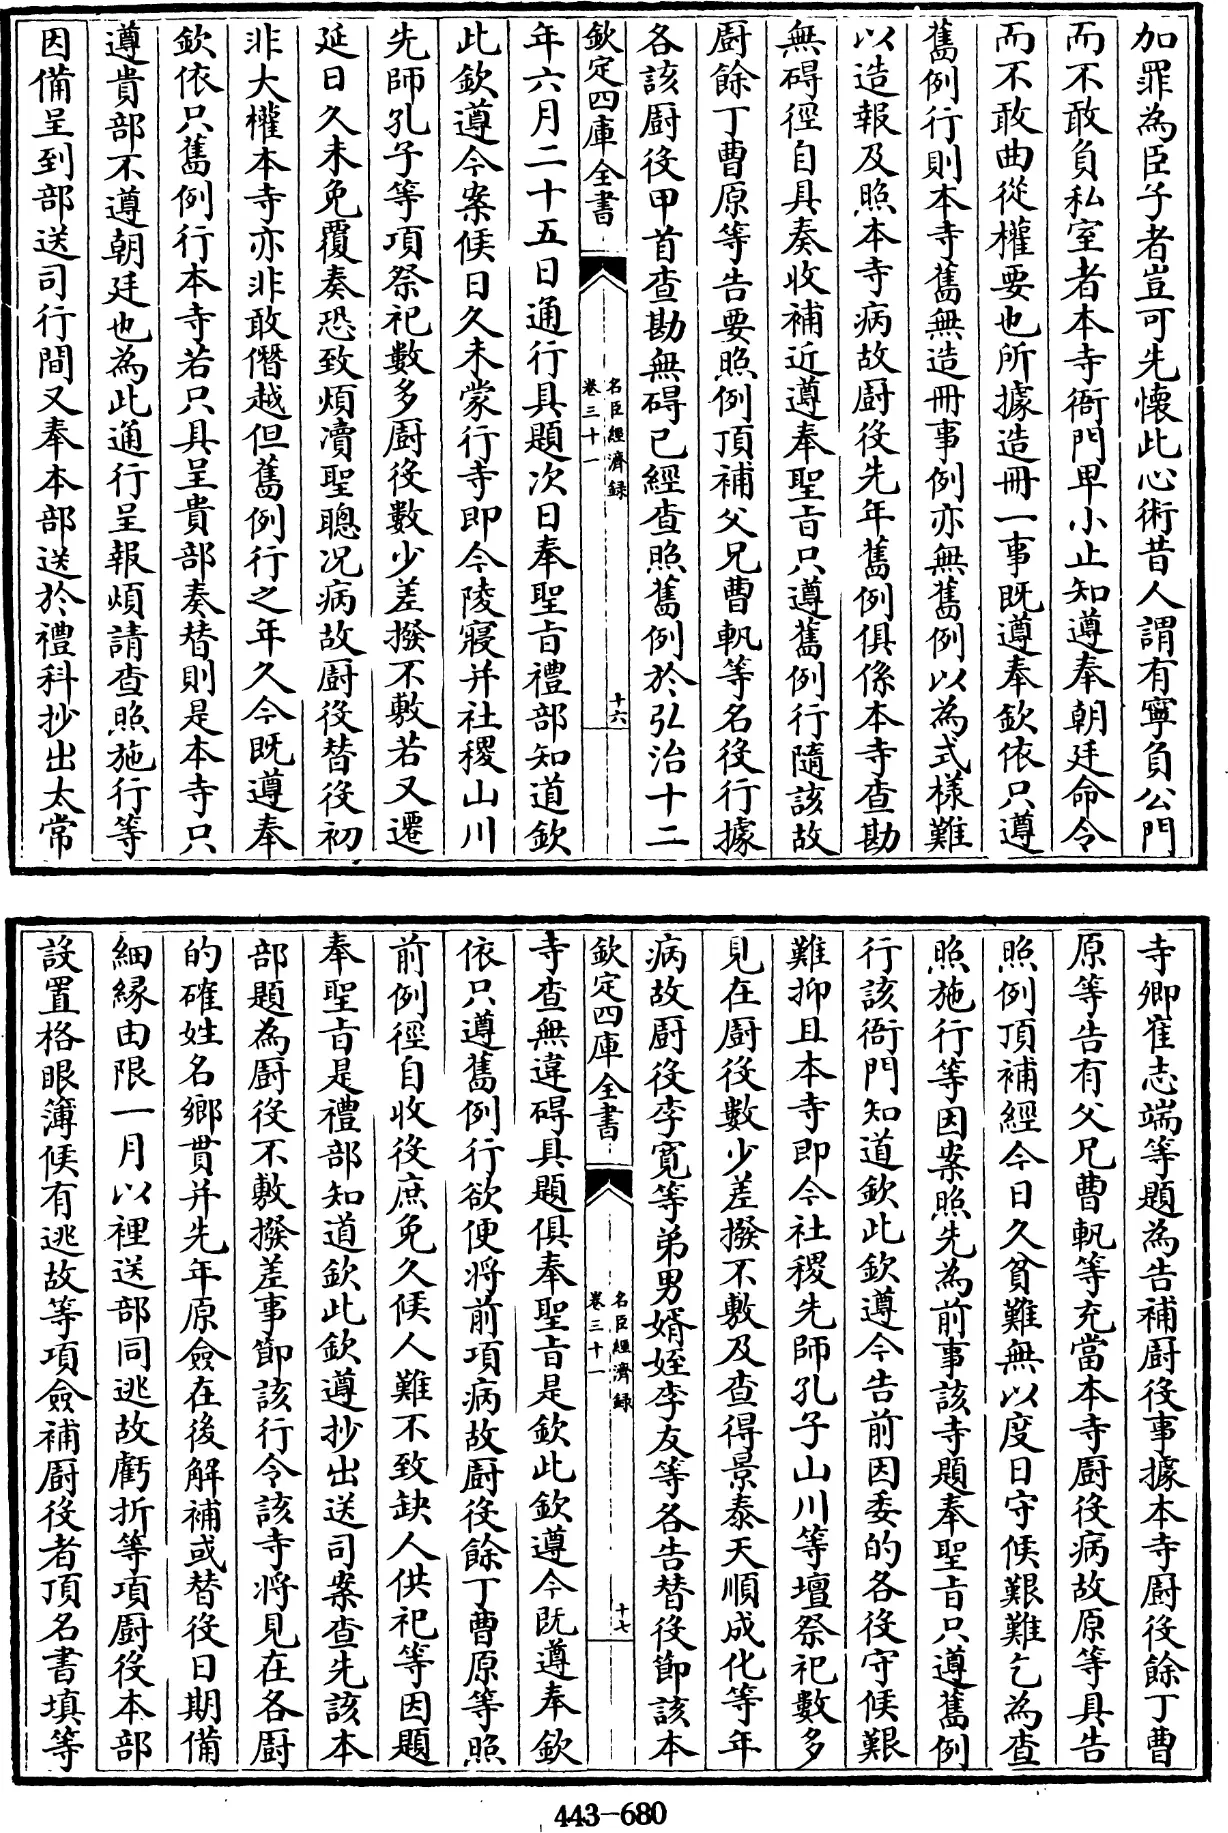 加罪為臣子者豈可先懷此心術昔人謂有寧負公門
而不敢負私室者本寺衙門卑小止知遵奉朝廷命令
而不敢曲從權要也所據造冊一事既遵奉欽依只遵
舊例行則本寺舊無造冊事例亦無舊例以為式樣難
以造報及照本寺病故厨役先年舊例俱係本寺查勘
無碍徑自具奏收補近遵奉聖旨只遵舊例行隨該故
厨餘丁曹原等告要照例頂補父兄曹軏等名役行據
各該厨役甲首查勘無碍已經查照舊例於弘治十二
欽定四庫全書
名臣經濟録
卷三十一
十六
年六月二十五日通行具題次日奉聖旨禮部知道欽
此欽遵今案候日久未蒙行寺即今陵寢并社稷山川
先師孔子等項祭祀數多厨役數少差撥不敷若又遷
延日久未免覆奏恐致煩瀆聖聰况病故厨役替役初
非大權本寺亦非敢僭越但舊例行之年久今既遵奉
欽依只舊例行本寺若只具呈貴部奏替則是本寺只
遵貴部不遵朝廷也為此通行呈報煩請查照施行等
因備呈到部送司行間又奉本部送於禮科抄出太常
寺卿崔志端等題為告補厨役事據本寺厨役餘丁曹
原等告有父兄曹軏等充當本寺厨役病故原等具告
照例頂補經今日久貧難無以度日守候艱難乞為查
照施行等因案照先為前事該寺題奉聖旨只遵舊例
行該衙門知道欽此欽遵今告前因委的各役守候艱
難抑且本寺即今社稷先師孔子山川等壇祭祀數多
見在厨役數少差撥不敷及查得景泰天順成化等年
病故厨役李寛等弟男婿姪李友等各告替役節該本
欽定四庫全書
名臣經濟録
卷三十一
十七
寺查無違碍具題俱奉聖旨是欽此欽遵今既遵奉欽
依只遵舊例行欲便將前項病故厨役餘丁曹原等照
前例徑自收役庶免久候人難不致缺人供祀等因題
奉聖旨是禮部知道欽此欽遵抄出送司案查先該本
部題為厨役不敷撥差事節該行令該寺將見在各厨
的確姓名鄉貫并先年原僉在後解補或替役日期備
細縁由限一月以裡送部同逃故虧折等項厨役本部
設置格眼簿候有逃故等項僉補厨役者頂名書填等
443-680